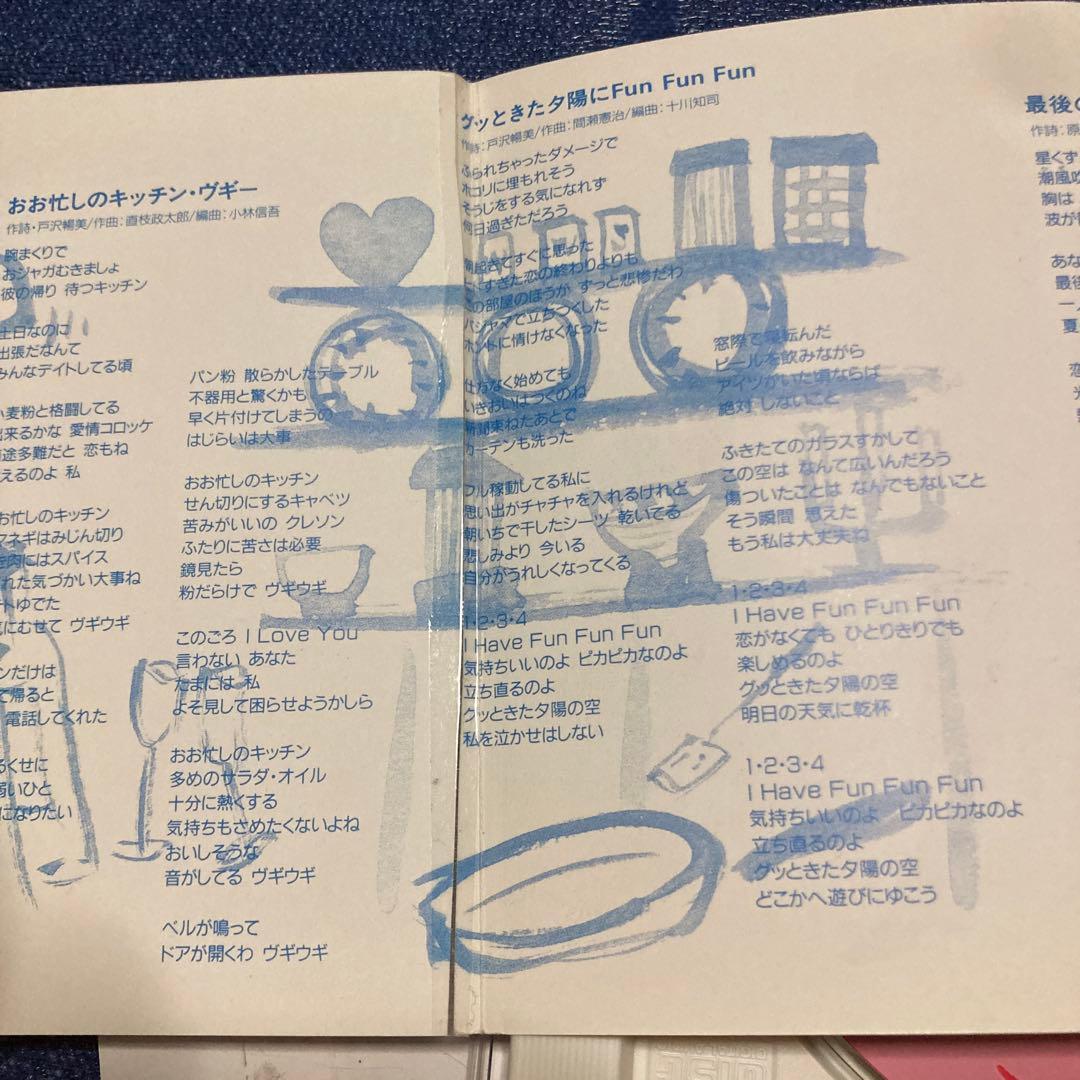 おお忙しのキッチン・ヴギー
作詩・戸沢暢美/作曲:直枝政太郎/編曲:小林信吾
腕まくりで
おジャガむきましょ
彼の帰り 待つキッチン
土日なのに
出張だなんて
みんなデイトしてる頃
麦粉と格闘してる
出来るかな 愛情コロッケ
途多難だと 恋もね
えるのよ 私
お忙しのキッチン
マネギはみじん切り
肉にはスパイス
れた気づかい大事ね
トゆでた
にむせて ヴギウギ
ンだけは
で帰ると
電話してくれた
るくせに
弱いひと
になりたい
パン粉 散らかしたテーブル
不器用と驚くかも
早く片付けてしまうの
はじらいは大事
おお忙しのキッチン
せん切りにするキャベツ
苦みがいいの クレソン
ふたりに苦さは必要
鏡見たら
粉だらけで ヴギウギ
このごろ I Love You
言わない あなた
たまには 私
よそ見して困らせようかしら
おお忙しのキッチン
多めのサラダ・オイル
十分に熱くする
気持ちもさめたくないよね
おいしそうな
音がしてる ヴギウギ
ベルが鳴って
ドアが開くわ ヴギウギ
グッときた夕陽にFun Fun Fun
作詩:戸沢暢美/作曲:間瀬憲治/編曲:十川知司
ふられちゃったダメージで
ホコリに埋もれそう
そうじをする気になれず
何日過ぎただろう
朝起きてすぐに思った
すぎた恋の終わりよりも
この部屋のほうが ずっと悲惨だわ
パジャマで立ちつくした
ホントに情けなくなった
仕方なく始めても
いきおいはつくのね
新聞束ねたあとで
カーテンも洗った
フル稼動してる私に
思い出がチャチャを入れるけれど
朝いちで干したシーツ 乾いてる
悲しみより 今いる
自分がうれしくなってくる
1・2・3・4
I Have Fun Fun Fun
気持ちいいのよ ピカピカなのよ
立ち直るのよ
グッときた夕陽の空
私を泣かせはしない
窓際で寝転んだ
ビールを飲みながら
アイツがいた頃ならば
絶対 しないこと
ふきたてのガラスすかして
この空は なんて広いんだろう
傷ついたことは なんでもないこと
そう瞬間 思えた
もう私は大丈夫ね
1・2・3・4
I Have Fun Fun Fun
恋がなくても ひとりきりでも
楽しめるのよ
グッときた夕陽の空
明日の天気に乾杯
1・2・3・4
I Have Fun Fun Fun
気持ちいいのよ ピカピカなのよ
立ち直るのよ
グッときた夕陽の空
どこかへ遊びにゆこう
最後の
作詩:原
星くず
潮風吹
胸は
波が
あな
最後
一
夏
恋